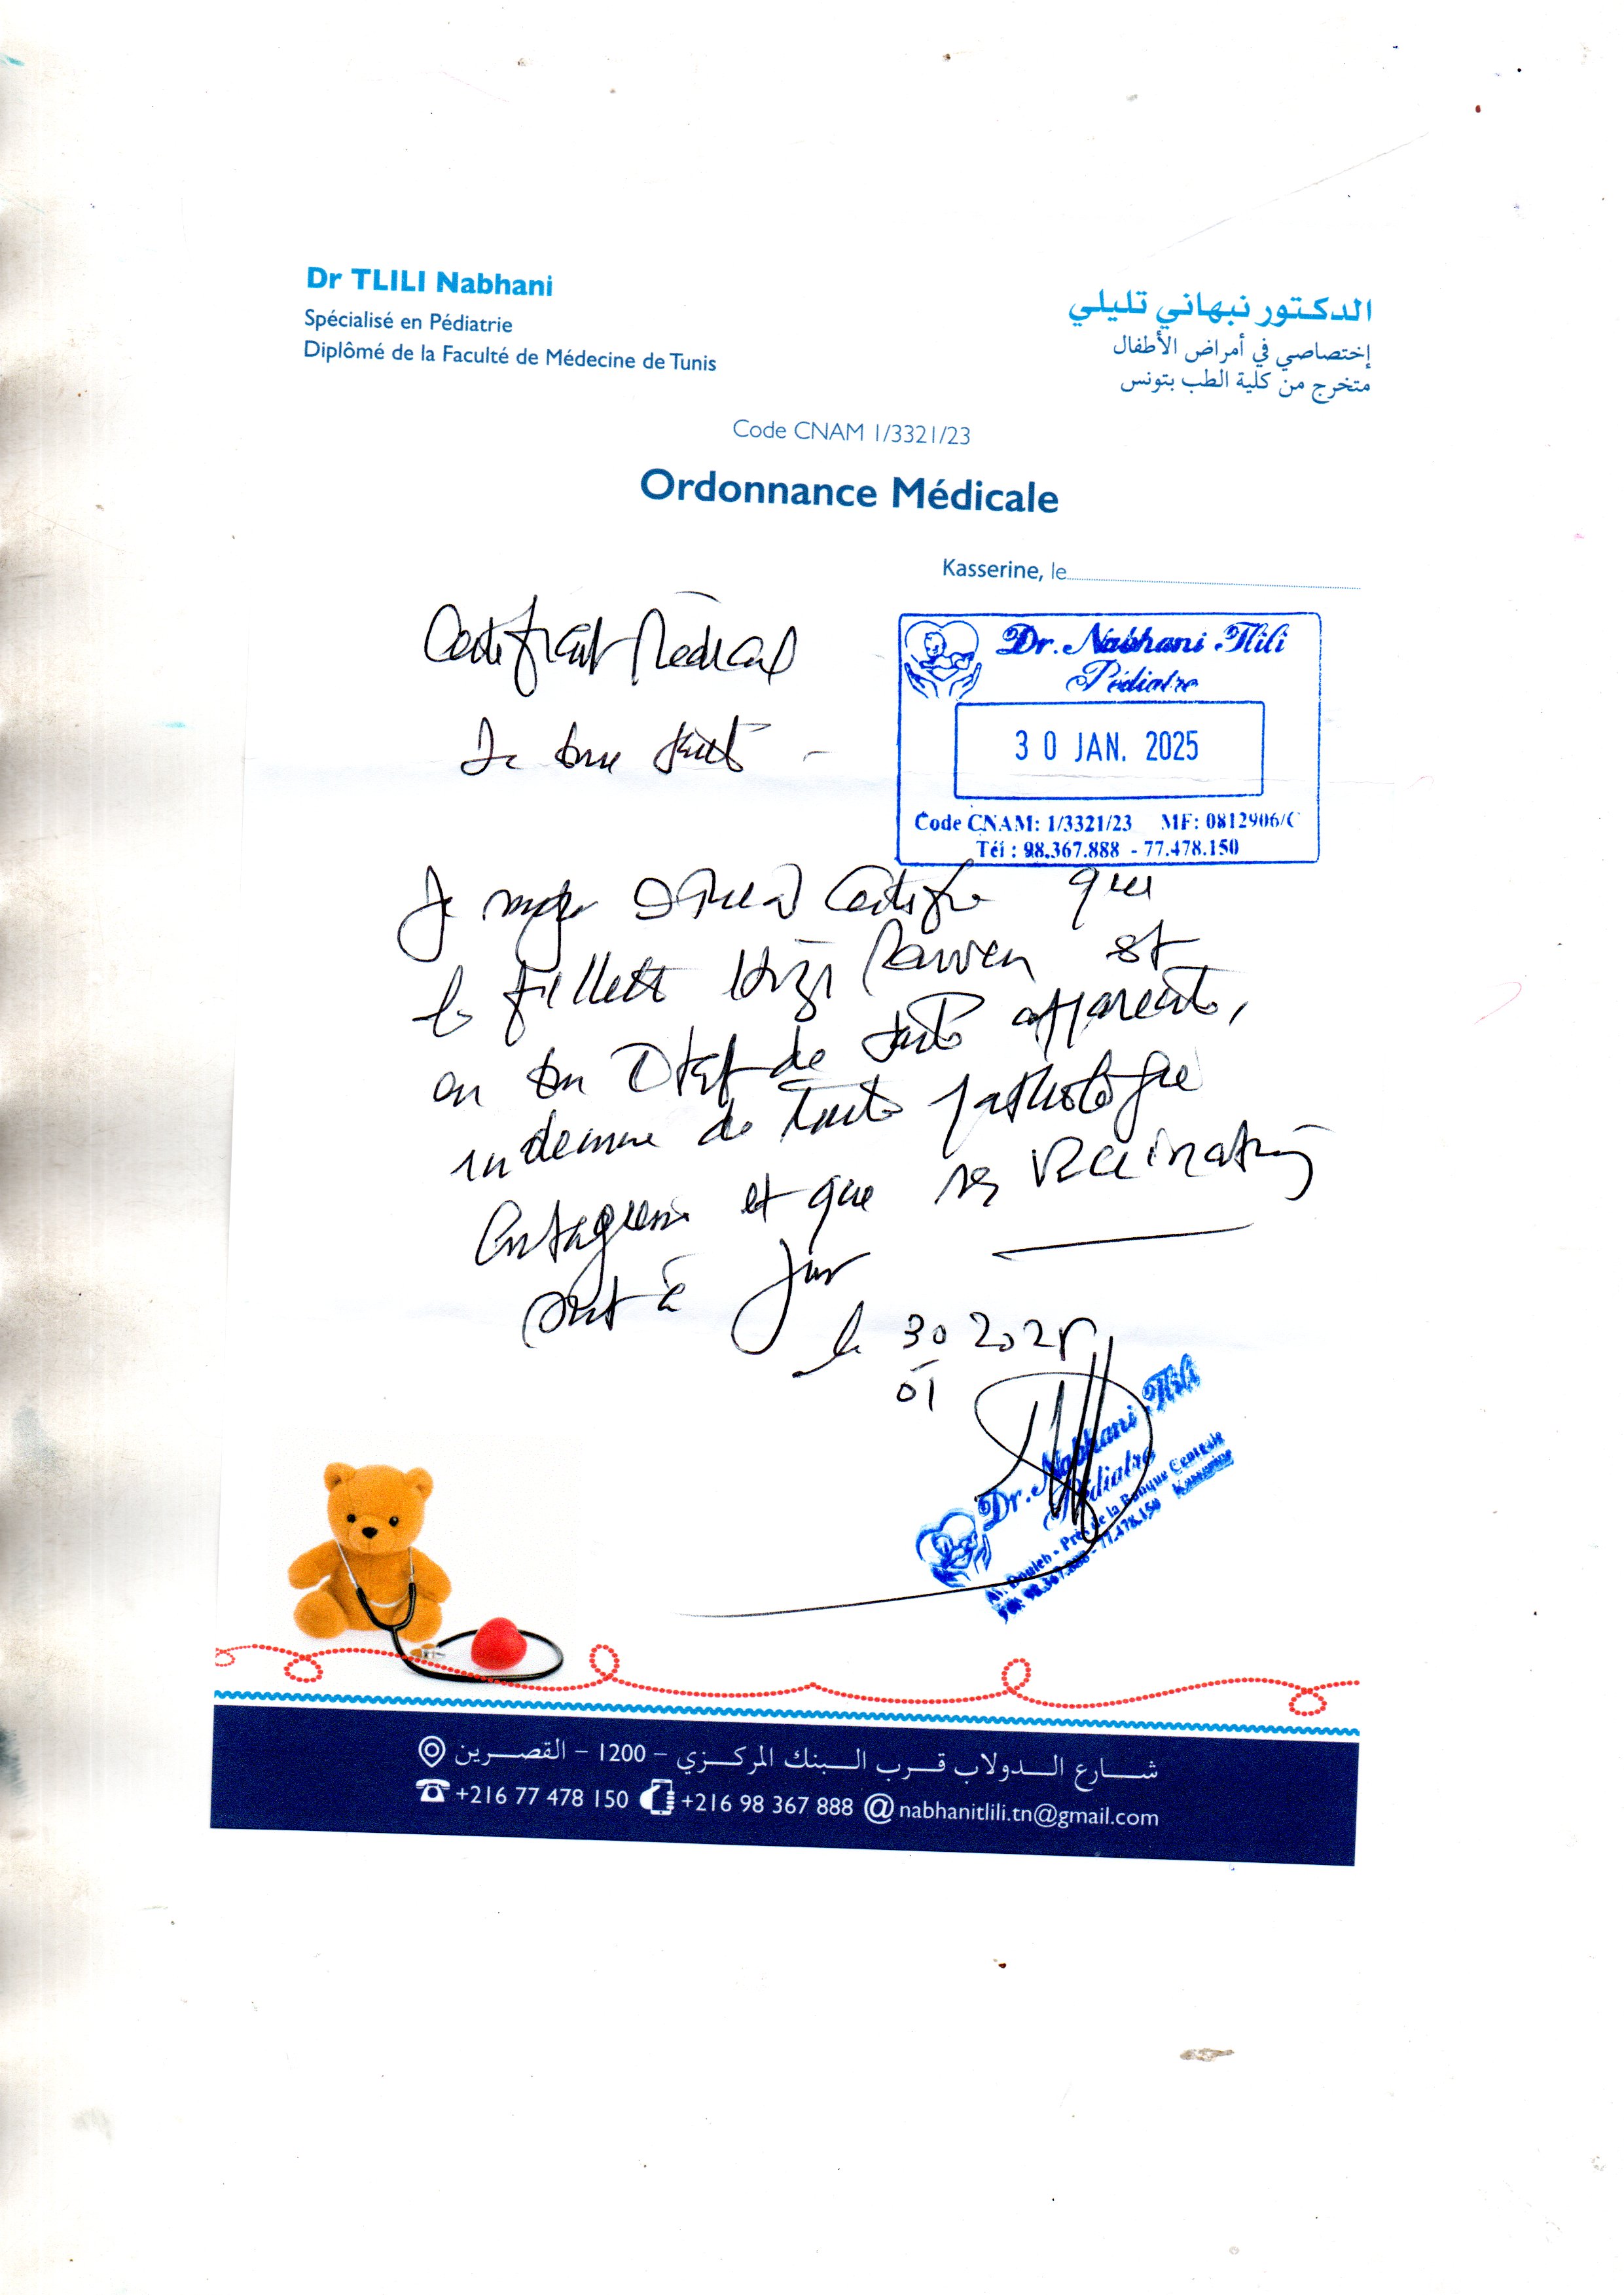 Dr TLILI Nabhani
Spécialisé en Pédiatrie
Diplômé de la Faculté de Médecine de Tunis
الدكتور نبهاني تليلي
إختصاصي في أمراض الأطفال
متخرج من كلية الطب بتونس
Code CNAM 1/3321/23
Ordonnance Médicale
Kasserine, le
Certificat Médical
Dr. Nabhani Tlili
Pédiatre
30 JAN. 2025
Code CNAM: 1/3321/23 MF: 0812906/C
Tél : 98.367.888 - 77.478.150
de bonne santé
Je certifie que
la fillette est
en bon état de santé apparente,
indemne de toute pathologie
contagieuse et que ses vaccinations
sont à jour
le 30 2025
01
Dr. Nabhani Tlili
Pédiatre
Av. Douleb - Près de la Banque Centrale
Tél: 98.367.888 - 77.478.150 Kasserine
شارع الدولاب قرب البنك المركزي - 1200 - القصرين
+216 77 478 150 +216 98 367 888 @ nabhanitlili.tn@gmail.com